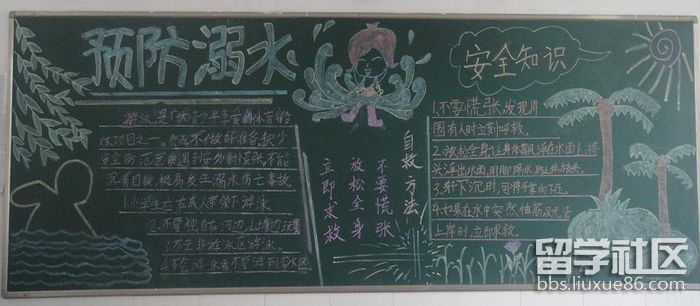 预防溺水
游泳是广大青少年喜爱的体育锻
炼项目之一。然而不做好准备缺少
安全防范意识遇到意外时慌张不能
沉着自救极易发生溺水伤亡事故
1.小学生应在成人带领下游泳
2.不要独自在河边、山塘边玩耍
3.不去非游泳区游泳
4.不会游泳者不要游到深水区
自救方法
不要慌张
放松全身
立即求救
安全知识
1.不要慌张发现周
围有人时立刻呼救
2.放松全身让身体飘浮在水面上将
头浮出水面用脚踢水
3.身体下沉时可将手掌向下压
4.如果在水中突然抽筋又无法
上岸时,立即求救
留学社区
bbs.liuxue86.com